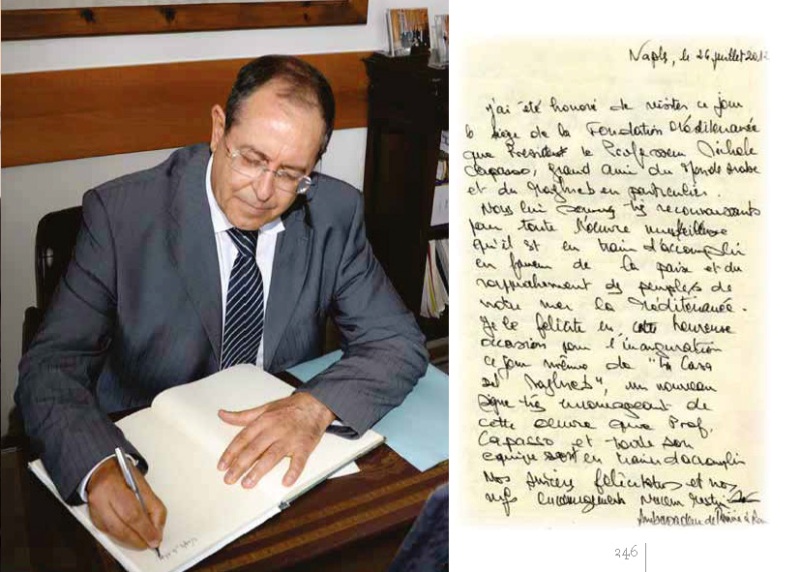 Naples, le 26 juillet 2012
J'ai été honoré de visiter ce jour
le siège de la Fondation Méditerranée
que Président le Professeur Michele
Capasso, grand ami du Monde Arabe
et du Maghreb en particulier.
Nous lui sommes très reconnaissants
pour toute l'œuvre merveilleuse
qu'il est en train d'accomplir
en faveur de la paix et du
rapprochement des peuples de
notre mer la Méditerranée.
Je le félicite en cette heureuse
occasion pour l'inauguration
ce jour même de "La Casa
del Maghreb", un nouveau
signe très encourageant de
cette œuvre que Prof.
Capasso et toute son
equipe sont en train d'accomplir
Nos sincères félicitations et nos
vifs encouragements
Ambassadeur de à
246